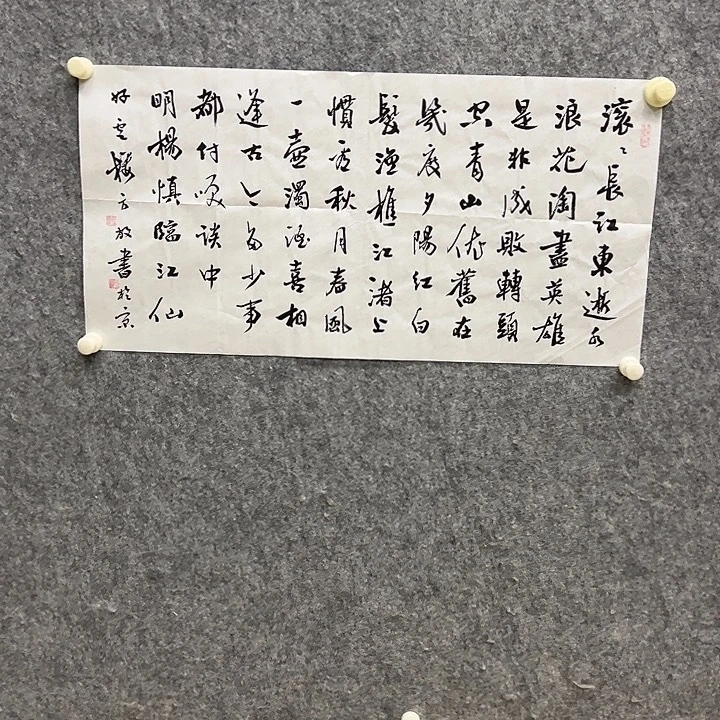 滚〻長江東逝水
浪花淘盡英雄
是非成敗轉頭
空青山依舊在
幾度夕陽紅白
髮漁樵江渚上
慣看秋月春風
一壺濁酒喜相
逢古今多少事
都付笑談中
明楊慎臨江仙
書於京